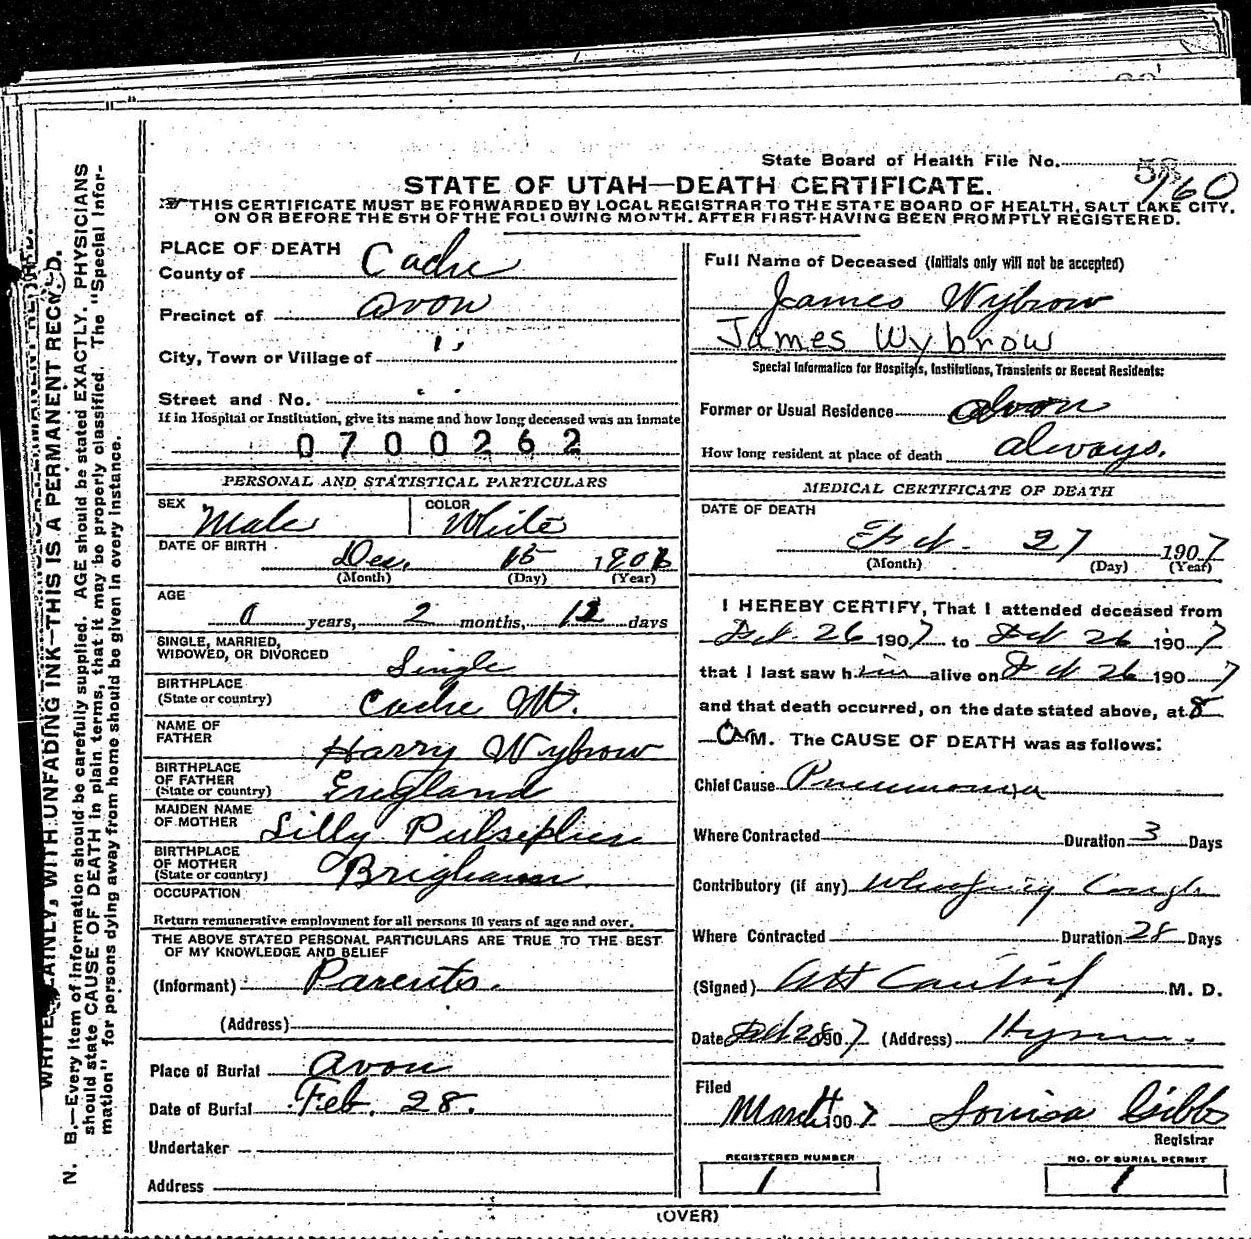 State Board of Health File No. 58
160
STATE OF UTAH—DEATH CERTIFICATE.
THIS CERTIFICATE MUST BE FORWARDED BY LOCAL REGISTRAR TO THE STATE BOARD OF HEALTH, SALT LAKE CITY.
ON OR BEFORE THE 5TH OF THE FOLLOWING MONTH. AFTER FIRST HAVING BEEN PROMPTLY REGISTERED.
WRITE PLAINLY, WITH UNFADING INK—THIS IS A PERMANENT RECORD.
N. B.—Every item of information should be carefully supplied. AGE should be stated EXACTLY. PHYSICIANS
should state CAUSE OF DEATH in plain terms, that it may be properly classified. The "Special Infor-
mation" for persons dying away from home should be given in every instance.
PLACE OF DEATH
County of Cache
Precinct of Avon
City, Town or Village of "
Street and No. "
If in Hospital or Institution, give its name and how long deceased was an inmate
0700262
PERSONAL AND STATISTICAL PARTICULARS
SEX Male COLOR White
DATE OF BIRTH Dec. 15 1906
(Month) (Day) (Year)
AGE
0 years, 2 months, 12 days
SINGLE, MARRIED,
WIDOWED, OR DIVORCED Single
BIRTHPLACE
(State or country) Cache Ut.
NAME OF
FATHER Harry Wybrow
BIRTHPLACE
OF FATHER
(State or country) England
MAIDEN NAME
OF MOTHER Lilly Pulsipher
BIRTHPLACE
OF MOTHER
(State or country) Brigham
OCCUPATION
Return remunerative employment for all persons 10 years of age and over.
THE ABOVE STATED PERSONAL PARTICULARS ARE TRUE TO THE BEST
OF MY KNOWLEDGE AND BELIEF
(Informant) Parents.
(Address)
Place of Burial Avon
Date of Burial Feb. 28.
Undertaker
Address
Full Name of Deceased (Initials only will not be accepted)
James Wybrow
James Wybrow
Special Information for Hospitals, Institutions, Transients or Recent Residents:
Former or Usual Residence Avon
How long resident at place of death always.
MEDICAL CERTIFICATE OF DEATH
DATE OF DEATH
Feb. 27 1907
(Month) (Day) (Year)
I HEREBY CERTIFY, That I attended deceased from
Feb 26 1907 to Feb 26 1907
that I last saw him alive on Feb 26 1907
and that death occurred, on the date stated above, at 8
A M. The CAUSE OF DEATH was as follows:
Chief Cause Pneumonia
Where Contracted Duration 3 Days
Contributory (if any) Whooping Cough
Where Contracted Duration 28 Days
(Signed) M. D.
Date Feb 28 1907 (Address) Hyrum.
Filed
March 4 1907 Louisa Gibbs
Registrar
REGISTERED NUMBER
1
NO. OF BURIAL PERMIT
1
(OVER)